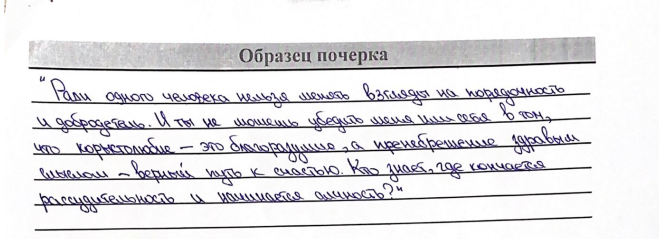 Образец почерка
"Рали одного человека нельзя менять взгляды на порядочность
и добродетель. И ты не можешь убедить меня или себя в том,
что корыстолюбие – это благоразумие, а пренебрежение здравым
смыслом – верный путь к счастью. Кто знает, где кончается
рассудительность и начинается алчность?"